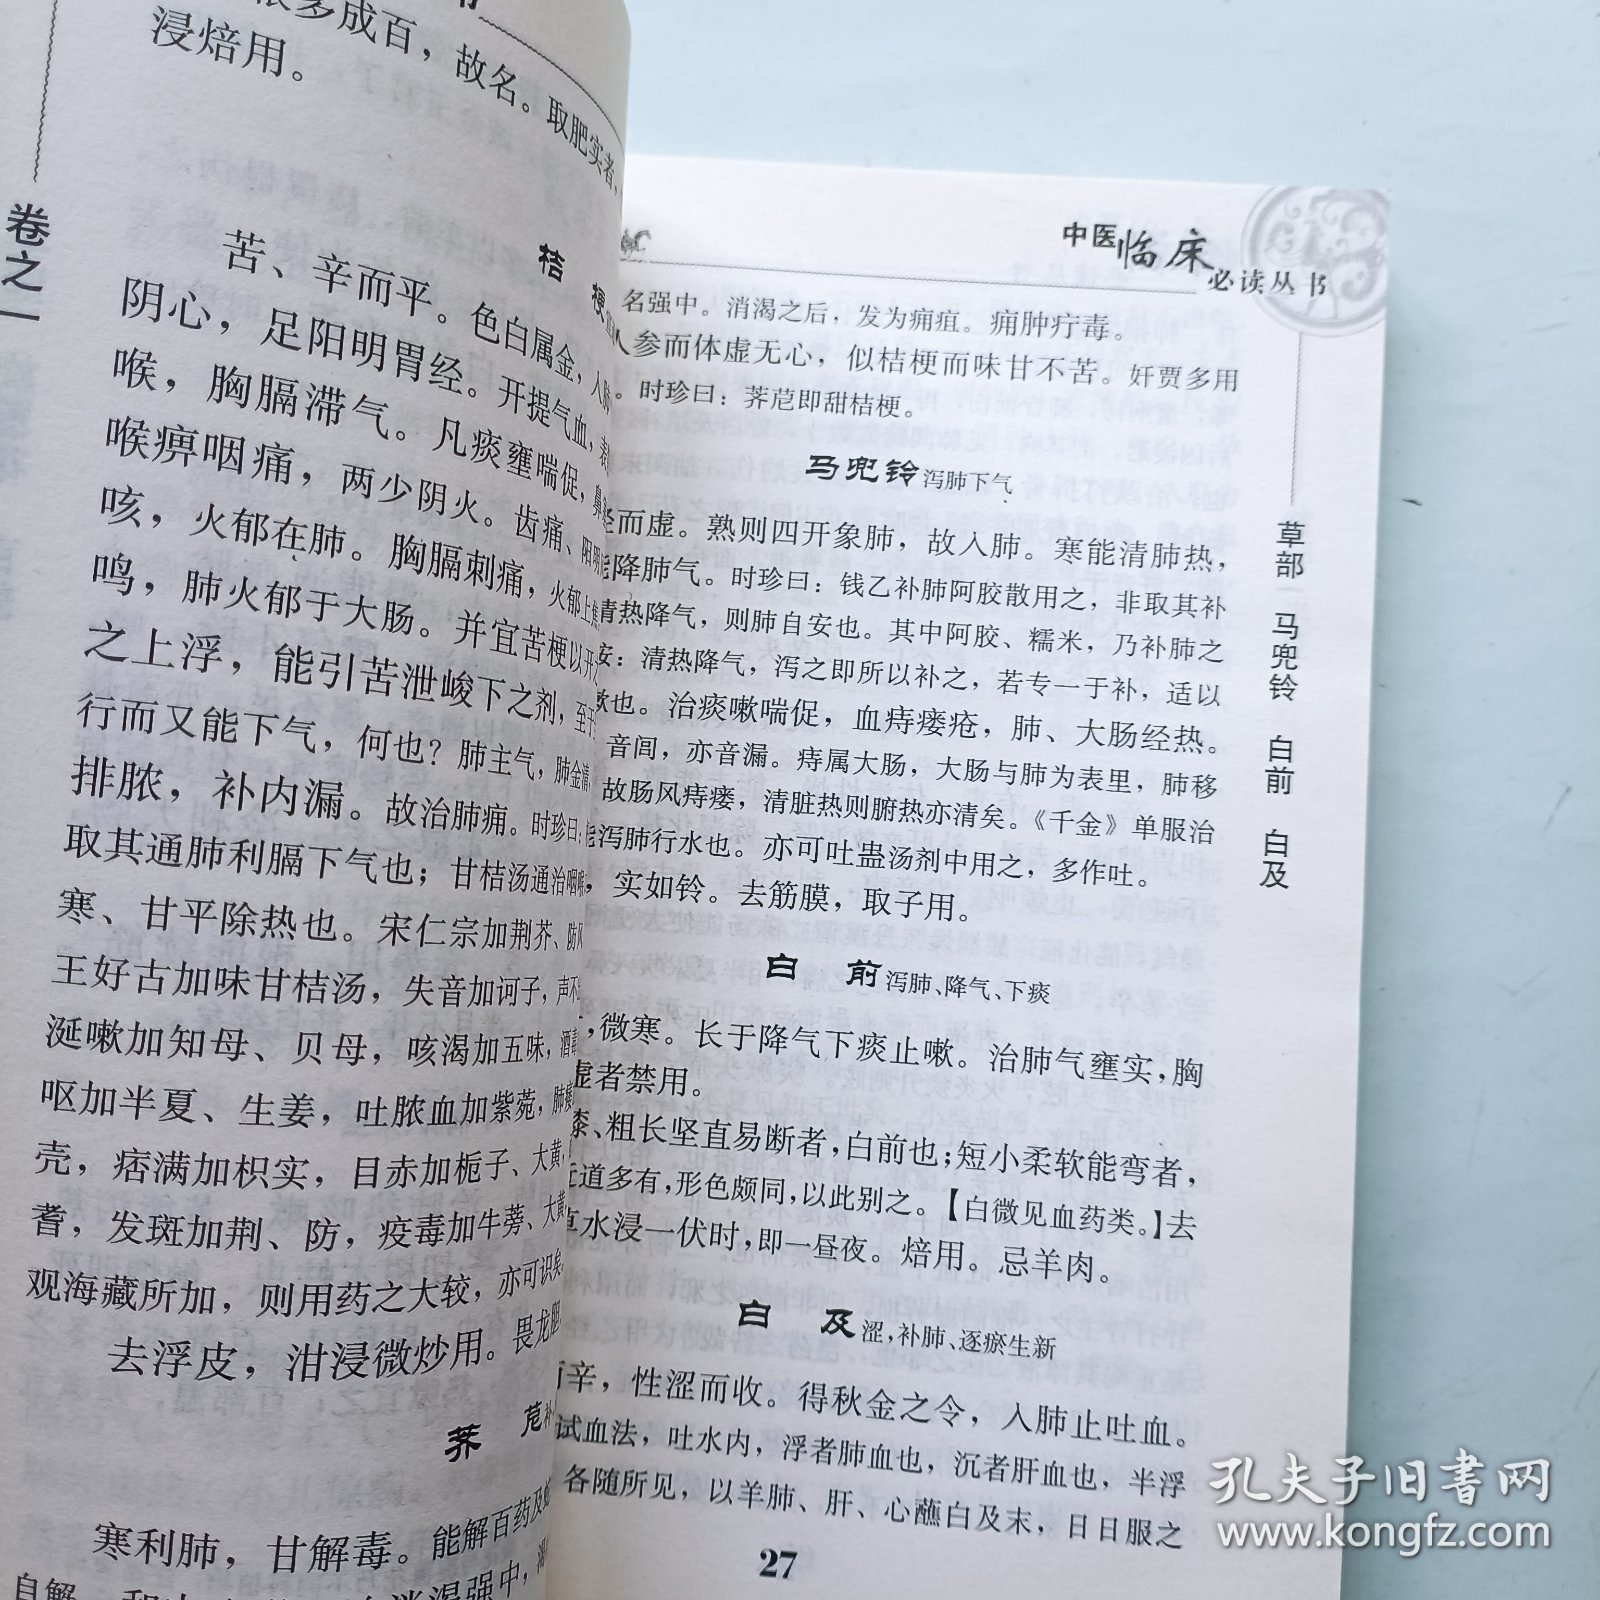 多成百，故名。取肥实者，
浸焙用。
卷之一
桔 梗
苦、辛而平。色白属金，入肺
阴心，足阳明胃经。开提气血，表
喉，胸膈滞气。凡痰壅喘促，鼻
喉痹咽痛，两少阴火。齿痛、阳明
咳，火郁在肺。胸膈刺痛，火郁上焦
鸣，肺火郁于大肠。并宜苦梗以开之
之上浮，能引苦泄峻下之剂，至于
行而又能下气，何也？肺主气，肺金清，
排脓，补内漏。故治肺痈。时珍曰：
取其通肺利膈下气也；甘桔汤通治咽喉
寒、甘平除热也。宋仁宗加荆芥、防风
王好古加味甘桔汤，失音加诃子，声不
涎嗽加知母、贝母，咳渴加五味，酒毒
呕加半夏、生姜，吐脓血加紫菀，肺痿
壳，痞满加枳实，目赤加栀子、大黄，
耆，发斑加荆、防，疫毒加牛蒡、大黄
观海藏所加，则用药之大较，亦可识矣。
去浮皮，泔浸微炒用。畏龙胆
荠 苨补
寒利肺，甘解毒。能解百药及蛇
自解
消渴强中，
中医临床
必读丛书
名强中。消渴之后，发为痈疽。痈肿疔毒。
人参而体虚无心，似桔梗而味甘不苦。奸贾多用
。时珍曰：荠苨即甜桔梗。
马兜铃泻肺下气
轻而虚。熟则四开象肺，故入肺。寒能清肺热，
能降肺气。时珍曰：钱乙补肺阿胶散用之，非取其补
清热降气，则肺自安也。其中阿胶、糯米，乃补肺之
按：清热降气，泻之即所以补之，若专一于补，适以
嗽也。治痰嗽喘促，血痔瘘疮，肺、大肠经热。
音闾，亦音漏。痔属大肠，大肠与肺为表里，肺移
故肠风痔瘘，清脏热则腑热亦清矣。《千金》单服治
能泻肺行水也。亦可吐蛊汤剂中用之，多作吐。
，实如铃。去筋膜，取子用。
白 前泻肺、降气、下痰
，微寒。长于降气下痰止嗽。治肺气壅实，胸
虚者禁用。
漆、粗长坚直易断者，白前也；短小柔软能弯者，
近道多有，形色颇同，以此别之。【白微见血药类。】去
草水浸一伏时，即一昼夜。焙用。忌羊肉。
白 及涩，补肺、逐瘀生新
而辛，性涩而收。得秋金之令，入肺止吐血。
试血法，吐水内，浮者肺血也，沉者肝血也，半浮
各随所见，以羊肺、肝、心蘸白及末，日日服之
27
草部 马兜铃 白前 白及
孔夫子旧书网
www.kongfz.com